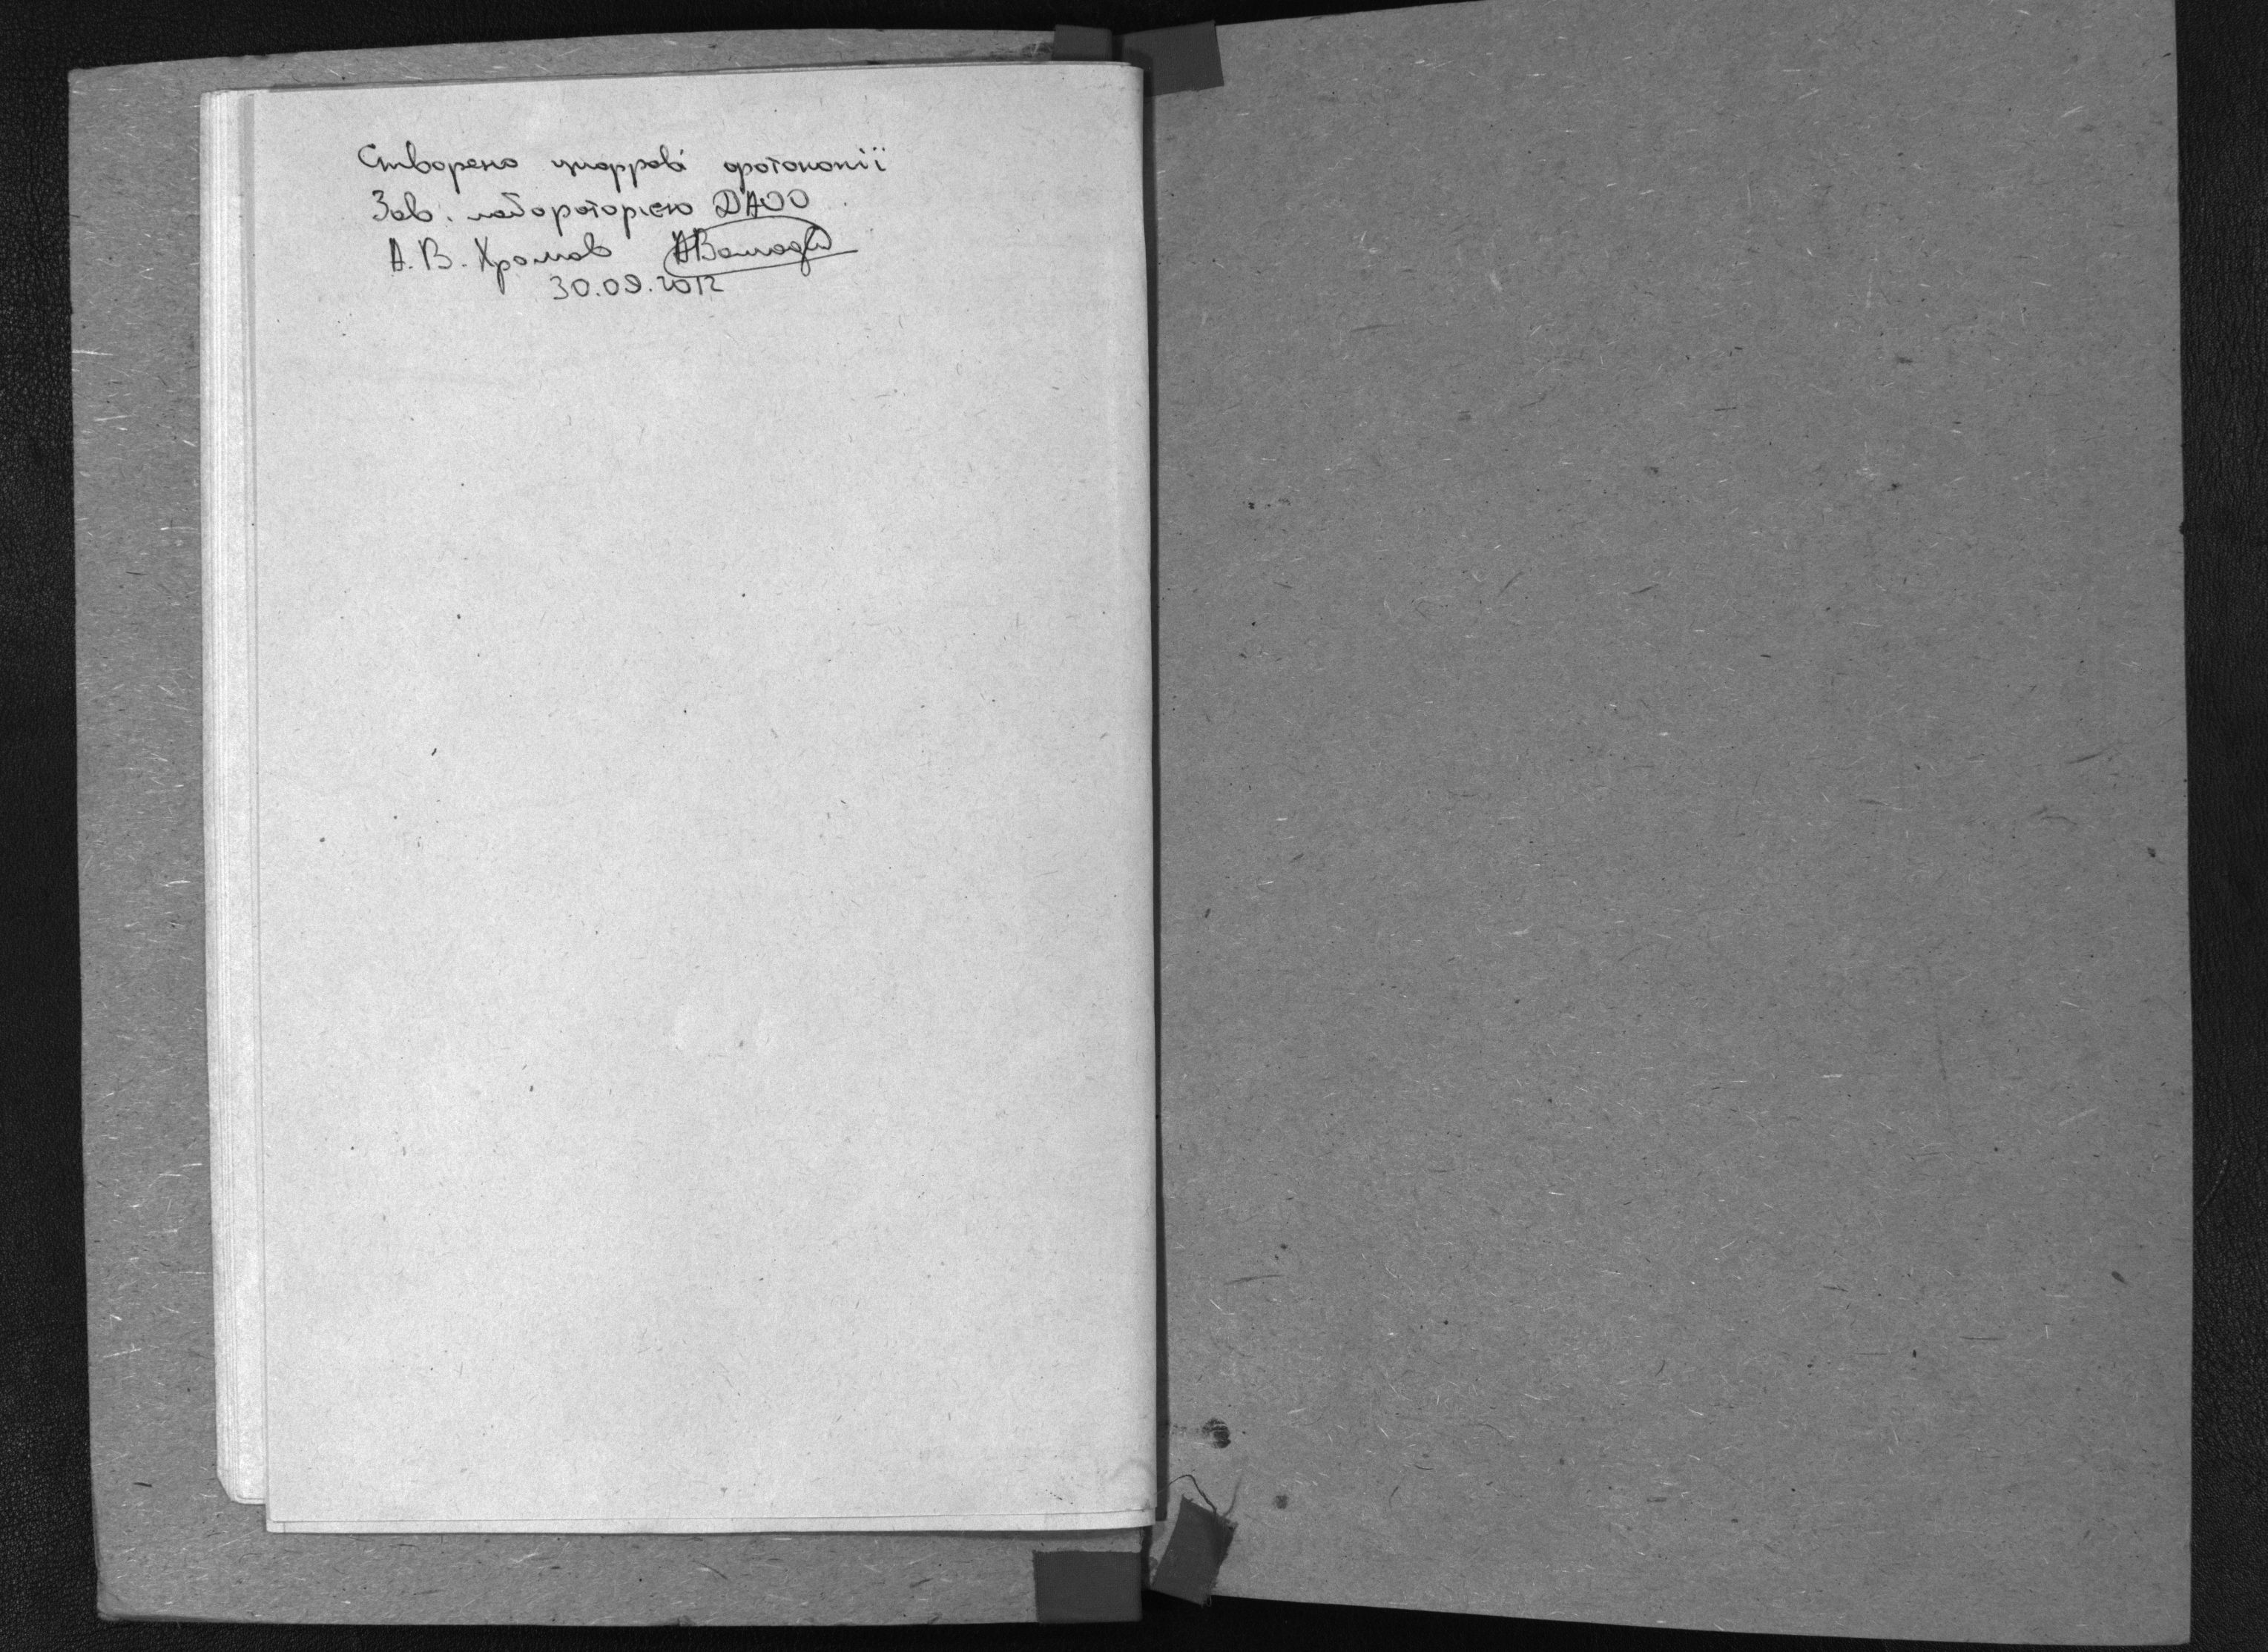 Створено цифрові фотокопії
Зав. лабораторією ДАОО
А. В. Хромов
30.09.2012